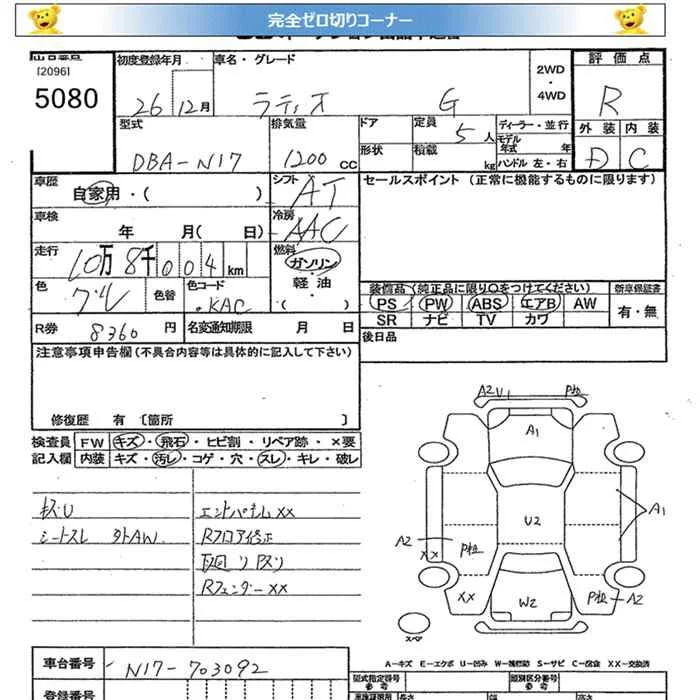 完全ゼロ切りコーナー
[2096]
5080
初度登録年月
26 12月
車名・グレード
ラティオ G
2WD
・
4WD
評価点
R
外装 内装
D C
型式
DBA-N17
排気量
1200 CC
ドア
形状
定員
5人
積載
kg
ディーラー・並行
モデル
年式 年
ハンドル 左・右
車歴
自家用・( )
シフト
AT
車検
年 月( 日)
冷房
AAC
走行
10万 8千 0 0 4 km
燃料
ガソリン
・
軽油
・
( )
色
グレ
色替
色コード
KAC
R券
8360 円
名変通知期限 月 日
セールスポイント (正常に機能するものに限ります)
装備品(純正品に限り○をつけてください)
PS PW ABS エアB AW
SR ナビ TV カワ
新車保証書
有・無
後日品
注意事項申告欄(不具合内容等は具体的に記入して下さい)
修復歴 有 〔箇所 〕
検査員 FW キズ・飛石・ヒビ割・リペア跡・×要
記入欄 内装 キズ・汚レ・コゲ・穴・スレ・キレ・破レ
シートスレ 外AW
エンドパネル XX
Rフロア修ホ
Rフェンダー XX
A2 U1
A1
A1
U2
A2
XX
XX
W2
A2
スペア
A-キズ E-エクボ U-凹み W-補修跡 S-サビ C-腐食 XX-交換済
車台番号
N17-703092
登録番号
型式指定番号
参考
類別区分番号
参考
長さ
幅
高さ